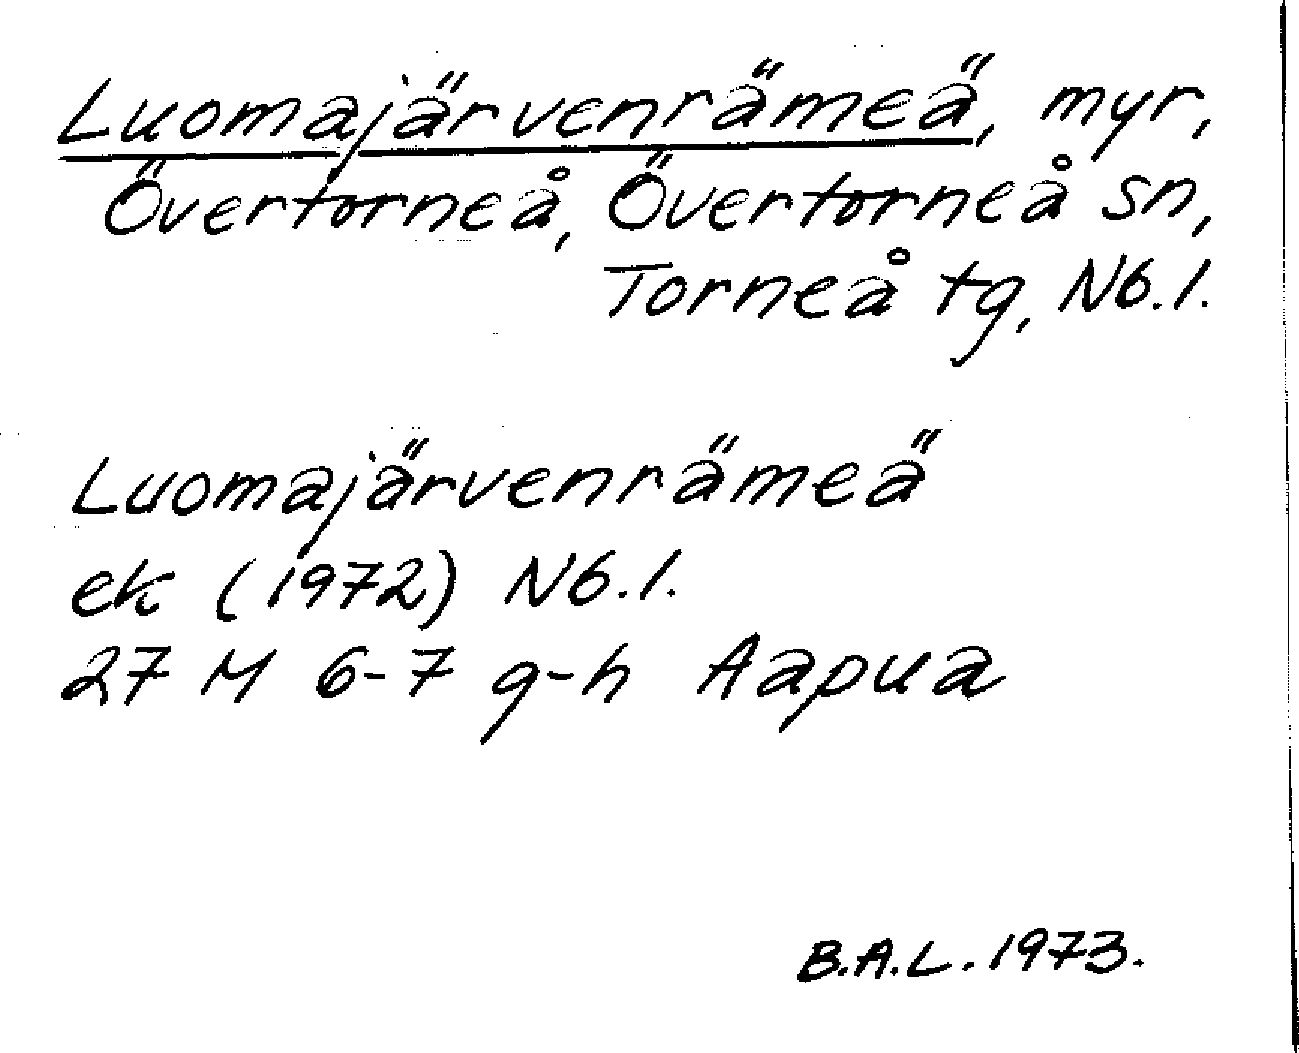 Luomajärvenrämeä, myr,
Övertorneå, Övertorneå sn,
Torneå tg, N6.1.
Luomajärvenrämeä
ek (1972) N6.1.
27 M 6-7 g-h Aapua
B.A.L. 1973.